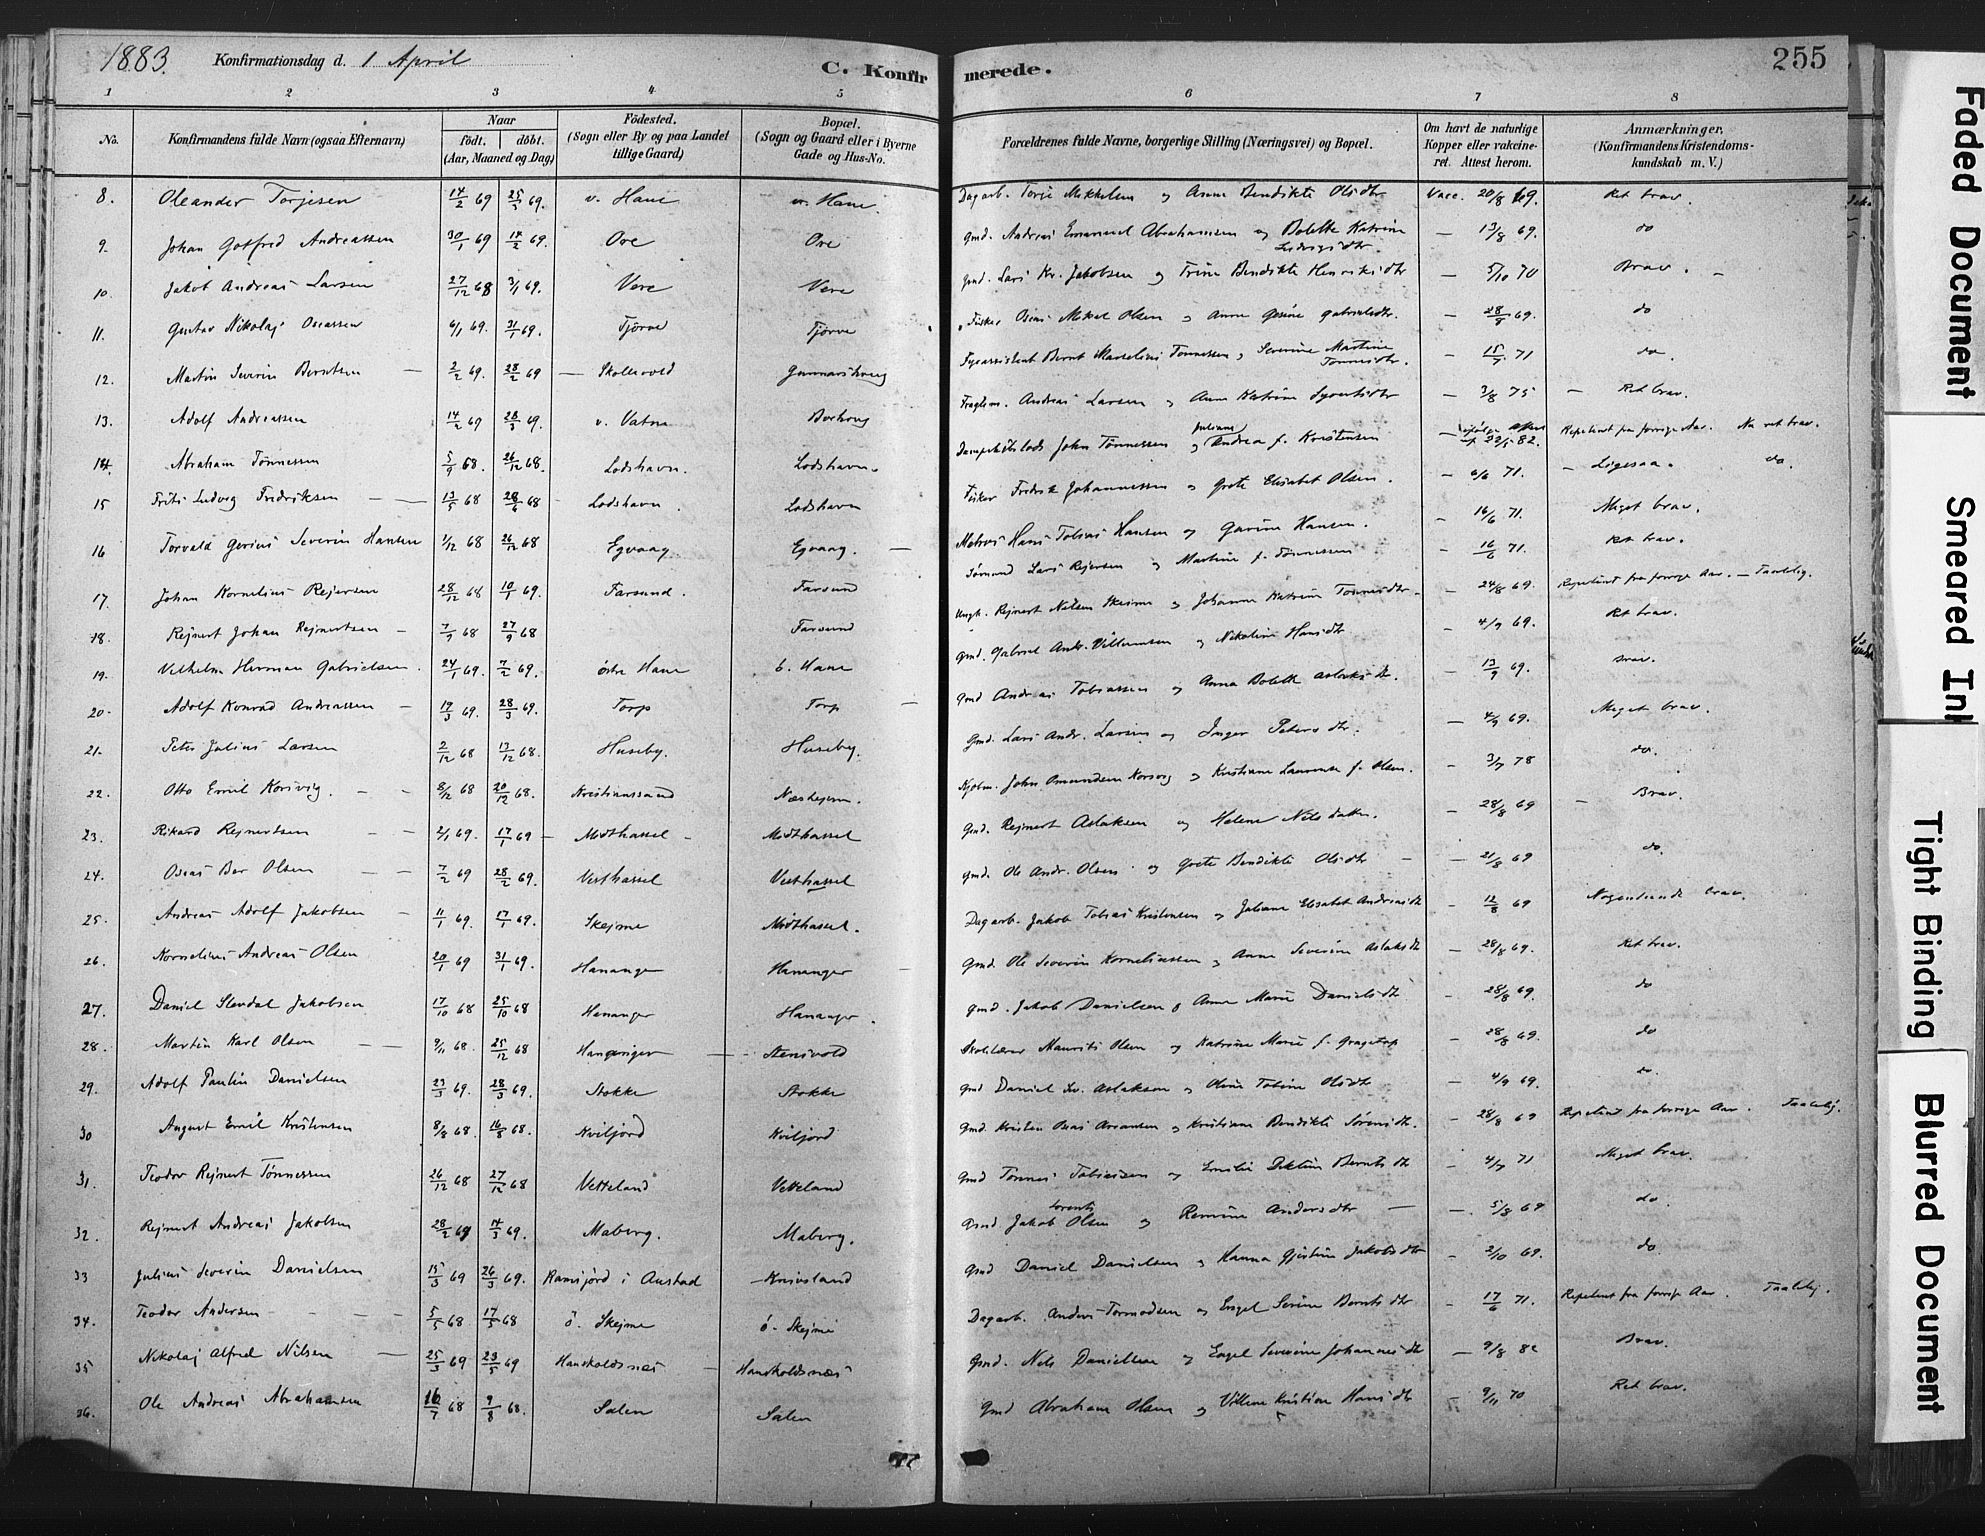 1883. Konfirmationsdag d. 1 April C. Konfirmerede. 255
1 2 3 4 5 6 7 8
No. Konfirmandens fulde Navn (ogsaa Efternavn) Naar født. døbt. (Aar, Maaned og Dag) Fødested. (Sogn eller By og paa Landet tillige Gaard) Bopæl. (Sogn og Gaard eller i Byerne Gade og Hus-No. Forældrenes fulde Navne, borgerlige Stilling (Næringsvei) og Bopæl. Om havt de naturlige Kopper eller vakcineret. Attest herom. Anmærkninger. (Konfirmandens Kristendomskundskab m. V.)
8. Oleander Torjesen 14/2 69 25/3 69. v. Hane v. Hane. Dagarb. Torje Mikkelsen og Anne Bendikte Olsdtr Vacc. 20/8 69. Ret brav.
9. Johan Gotfred Andreassen 30/1 69 14/2 69. Ore Ore Gmd. Andreas Emanuel Abrahamsen og Bolette Katrine Ludvigsdtr. — 13/8 69. do
10 Jakob Andreas Larsen 27/12 68 3/1 69. Vere Vere Gmd. Lars Kr. Jakobsen og Trine Bendikte Henriksdtr — 5/10 70 Brav.
11. Gustav Nikolaj Oseassen 6/1 69. 31/1 69. Tjørve Tjørve Fisker Oseas Mikal Olsen og Anne Gesine Gabrielsdtr. — 28/8 69. do
12. Martin Severin Berntsen — 2/2 69. 28/2 69 — Skollevold Gunnarshaug Fyrassistent Bernt Marselius Tønnessen og Severine Martine Tønnesdtr. — 15/7 71 do.
13. Adolf Andreassen 14/2 69 28/3 69. v. Vatne Borhaug Andreas Larsen og Anne Katrine Syvertsdtr — 3/8 75 — Ret brav.
14. Abraham Tønnessen 5/9 68. 26/12 68. Lodshavn. Lodshavn. John Tønnessen og Juliane Andrea f. Kristensen — 22/5 82. Repetent fra forrige Aar. Nu ret brav.
15 Frits Ludvig Fredriksen 13/5 68 28/6 68 Lodshavn. Lodshavn Fisker Fredrik Johannessen og Grete Elisabet Olsen. — 6/6 71. — Ligesaa. do.
16 Torvald Gerius Severin Hansen 1/12 68 26/12 68 Egvaag Egvaag. — Matros Hans Tobias Hansen og Gurine Hansen. — 16/6 71. Meget brav.
17. Johan Kornelius Rejersen 28/12 68 10/1 69. Farsund. Farsund Lars Rejersen og Martine f. Tønnessen — 16/6 71. Ret brav.
18. Rejnert Johan Rejnertsen — 7/9 68 27/9 68 Farsund Rejnert Nilsen Skeime og Johanne Katrine Tønnesdtr — 24/8 69. Repetent fra forrige Aar. — Taalelig.
19. Vilhelm Herman Gabrielsen. 24/1 69. 7/2 69. østre Hane ö. Hane Gmd. Gabriel Andr. Villumsen og Nikoline Hansdtr — 4/9 69. Ret brav.
20. Adolf Konrad Andreassen — 14/3 69. 28/3 69. Torp Torp — Gmd Andreas Tobiassen og Anna Bolette Aslaksdtr. — 13/9 69. Brav.
21. Peter Julius Larsen 2/12 68 13/12 68. Huseby. Huseby. Gmd. Lars Andr. Larsen og Inger Petersdtr. — 4/9 69. Meget brav.
22. Otto Emil Korsvig. — — 8/12 68 20/12 68. Kristianssand Næshejem. Kjøbm. John Omundsen Korsvig og Kristiane Laurense f. Olsen. — 3/7 78 do.
23. Rikard Rejnertsen — — 2/1 69. 17/1 69 — Midthassel — Midthassel Gmd. Rejnert Aslaksen og Helene Nilsdatter. — 28/8 69 — Brav.
24. Oseas Ber Olsen — — 7/2 69 28/2 69. Vesthassel Vesthassel Gmd. Ole Andr. Olsen og Grete Bendikte Olsdtr — — 21/8 69 do.
25. Andreas Adolf Jakobsen — 11/1 69. 17/1 69. Skejme Midthassel. Dagarb. Jakob Tobias Kristensen og Juliane Elisabet Andreasdtr — 12/8 69 Nogenlunde brav.
26. Kornelius Andreas Olsen 20/1 69 31/1 69. Hananger Hananger — Gmd. Ole Severin Korneliussen og Anne Severine Aslaksdtr — 28/8 69. Ret brav.
27. Daniel Stendal Jakobsen 17/10 68 25/10 68 Hananger Hananger. Gmd. Jakob Danielsen og Anne Marie Danielsdtr — 28/8 69. do
28. Martin Karl Olsen — — 9/11 68. 25/12 68 Hananger — Stensvold Skolelærer Maurits Olsen og Katrine Marie f. Gragetop — 28/8 69. do
29. Adolf Paulin Danielsen 23/3 69. 28/3 69. Stokke Stokke Gmd Daniel Kr. Aslaksen og Oline Tobine Olsdtr — 4/9 69. do.
30 August Emil Kristensen 8/8 68. 16/8 68. Kviljord Kviljord Gmd. Kristen Oseas Arеansen og Kristiane Bendikte Sørensdtr. — 28/8 69 Repetent fra forrige Aar. Taalelig.
31. Teodor Rejnert Tønnessen 26/12 68 27/12 68 Vetteland Vetteland Gmd Tønnes Tobiassen og Emilie Berntsdtr — 4/7 71 Meget brav.
32. Rejnert Andreas Jakobsen 28/2 69 14/3 69. Maberg. Maberg. Gmd Jakob Olsen og Remine Andersdtr — — 5/8 69 do
33 Julius Severin Danielsen 15/3 69 26/3 69. Ramsjord i Austad — Knivsland Gmd Daniel Danielsen og Hanna Gjertine Jakobsdtr — 2/10 69. do
34. Teodor Andersen — — — 5/5 68 17/5 68 ö. Skejme ö. Skejme Dagarb. Anders Tormodsen og Engel Serine Berntsdtr — 17/6 71. Repetent fra forrige Aar. Taalelig.
35 Nikolaj Alfred Nilsen — 25/3 69 23/5 69 Hauskoldsnæs — Hauskoldsnæs Gmd. Nils Danielsen og Engel Severine Johannesdtr — 9/8 82 Brav.
36. Ole Andreas Abrahamsen 16/7 68 9/8 68. Salen Salen Gmd Abraham Olsen og Villene Kristine Hansdtr — 9/11 70 Ret brav.
Faded Document
Smeared Ink
Tight Binding
Blurred Document